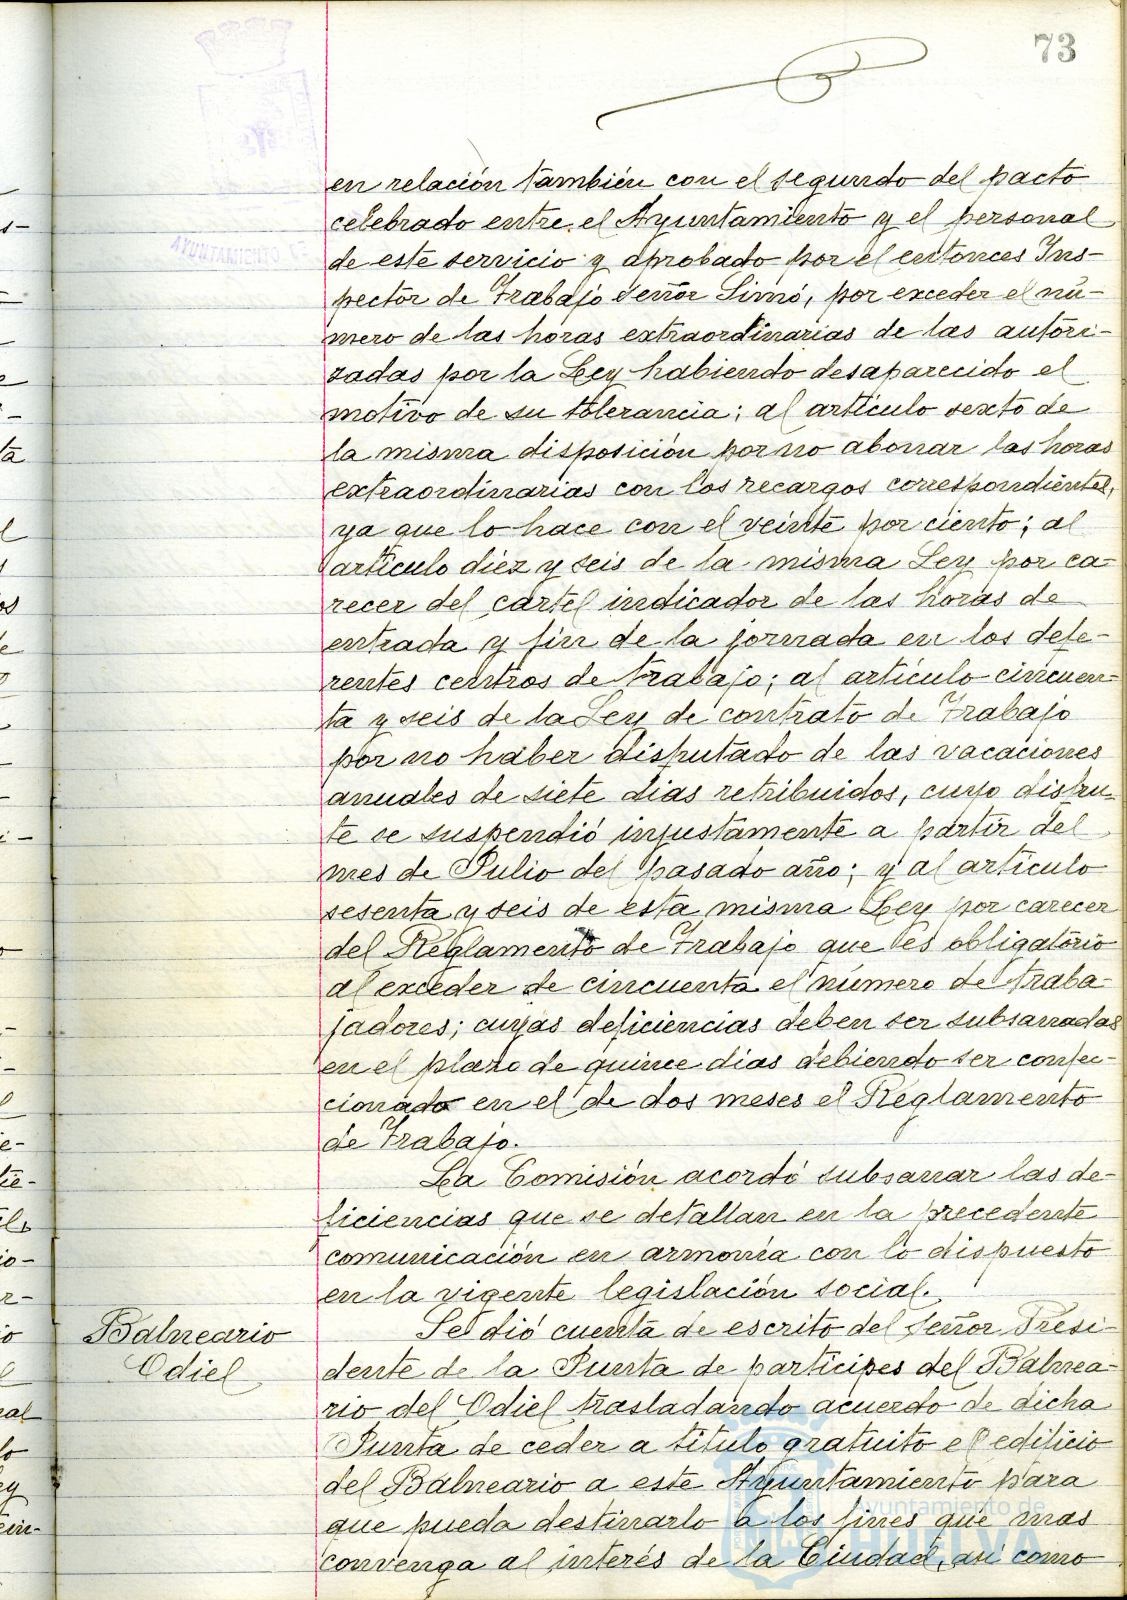 73
en relación también con el segundo del pacto
celebrado entre el Ayuntamiento y el personal
de este servicio y aprobado por el entonces Ins-
pector de Trabajo señor Simó, por exceder el nú-
mero de las horas extraordinarias de las autori-
zadas por la Ley habiendo desaparecido el
motivo de su tolerancia; al artículo sexto de
la misma disposición por no abonar las horas
extraordinarias con los recargos correspondientes,
ya que lo hace con el veinte por ciento; al
artículo diez y seis de la misma Ley por ca-
recer del cartel indicador de las horas de
entrada y fin de la jornada en los defe-
rentes centros de trabajo; al artículo cincuen-
ta y seis de la Ley de contrato de Trabajo
por no haber disfrutado de las vacaciones
anuales de siete dias retribuidos, cuyo disfru-
te se suspendió injustamente a partir del
mes de Julio del pasado año; y al artículo
sesenta y seis de esta misma Ley por carecer
del Reglamento de Trabajo que es obligatorio
al exceder de cincuenta el número de traba-
jadores; cuyas deficiencias deben ser subsanadas
en el plazo de quince dias debiendo ser confec-
cionado en el de dos meses el Reglamento
de Trabajo.
La Comisión acordó subsanar las de-
ficiencias que se detallan en la precedente
comunicación en armonía con lo dispuesto
en la vigente legislación social.
Balneario
Odiel
Se dió cuenta de escrito del señor Presi-
dente de la Junta de partícipes del Balnea-
rio del Odiel trasladando acuerdo de dicha
Junta de ceder a título gratuito el edificio
del Balneario a este Ayuntamiento para
que pueda destinarlo a los fines que mas
convenga al interés de la Ciudad, asi como
AYUNTAMIENTO DE
Ayuntamiento de
HUELVA